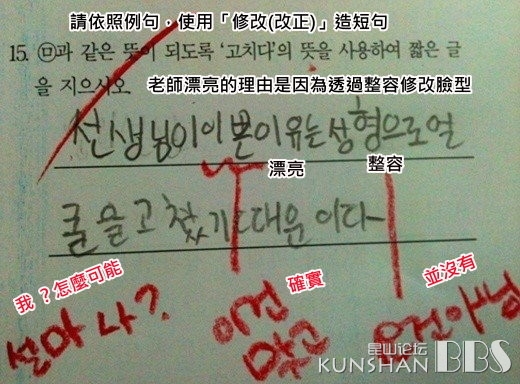 請依照例句，使用「修改(改正)」造短句
15. ㉤과 같은 뜻이 되도록 '고치다'의 뜻을 사용하여 짧은 글
을 지으시오
老師漂亮的理由是因為透過整容修改臉型
선생님이 이쁜 이유는 성형으로 얼
漂亮
整容
굴을 고쳤기 때문이다
我？怎麼可能
確實
並沒有
설마 나?
이건
맞고
요건 아님
昆山论坛
KUNSHAN BBS